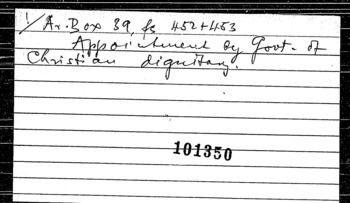 1/ Ar. Box 39, fs 452+453
Appointment by Govt. of
Christian dignitary.
101350